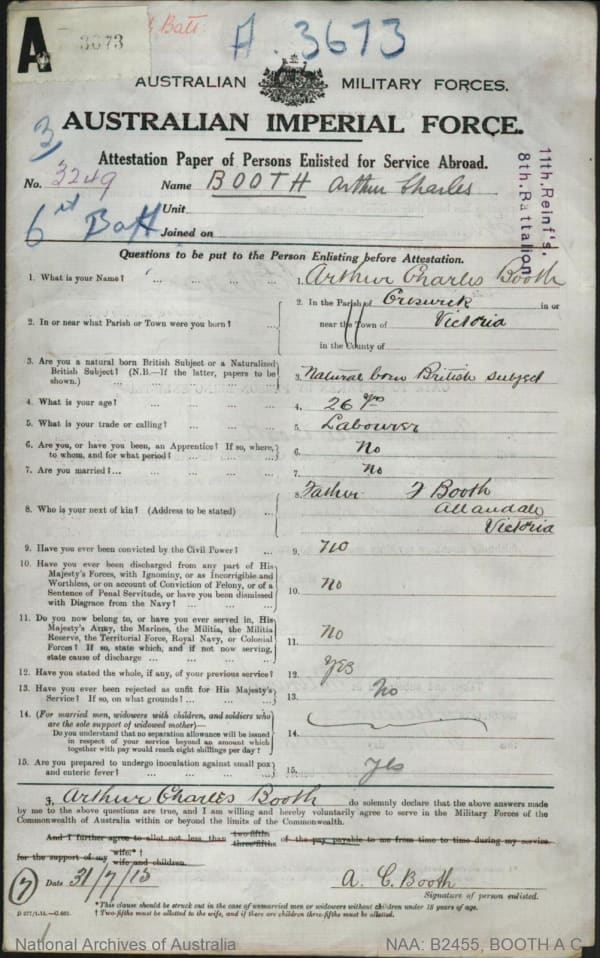 A 3673
Batt.
A. 3673
AUSTRALIAN MILITARY FORCES.
AUSTRALIAN IMPERIAL FORCE.
3
Attestation Paper of Persons Enlisted for Service Abroad.
11th. Reinf's.
8th. Battalion
No. 3249 Name BOOTH Arthur Charles
Unit
6 Batt
Joined on
Questions to be put to the Person Enlisting before Attestation.
1. What is your Name? ... ... ... ... 1. Arthur Charles Booth
2. In or near what Parish or Town were you born? ... 2. In the Parish of Creswick in or
near the Town of Victoria
in the County of
3. Are you a natural born British Subject or a Naturalized
British Subject? (N.B.—If the latter, papers to be
shown.) ... ... ... ... 3. Natural born British subject
4. What is your age? ... ... ... ... 4. 26 yrs
5. What is your trade or calling? ... ... ... 5. Labourer
6. Are you, or have you been, an Apprentice? If so, where,
to whom, and for what period? ... ... ... 6. No
7. Are you married?... ... ... ... 7. no
8. Who is your next of kin? (Address to be stated) ... 8. Father F Booth
Allandale
Victoria
9. Have you ever been convicted by the Civil Power? ... 9. NO
10. Have you ever been discharged from any part of His
Majesty's Forces, with Ignominy, or as Incorrigible and
Worthless, or on account of Conviction of Felony, or of a
Sentence of Penal Servitude, or have you been dismissed
with Disgrace from the Navy? ... ... ... 10. no
11. Do you now belong to, or have you ever served in, His
Majesty's Army, the Marines, the Militia, the Militia
Reserve, the Territorial Force, Royal Navy, or Colonial
Forces? If so, state which, and if not now serving,
state cause of discharge ... ... ... ... 11. no
12. Have you stated the whole, if any, of your previous service? 12. YES
13. Have you ever been rejected as unfit for His Majesty's
Service? If so, on what grounds? ... ... ... 13. No
14. (For married men, widowers with children, and soldiers who
are the sole support of widowed mother)—
Do you understand that no separation allowance will be issued
in respect of your service beyond an amount which
together with pay would reach eight shillings per day? 14.
15. Are you prepared to undergo inoculation against small pox
and enteric fever? ... ... ... ... 15. Yes
I, Arthur Charles Booth do solemnly declare that the above answers made
by me to the above questions are true, and I am willing and hereby voluntarily agree to serve in the Military Forces of the
Commonwealth of Australia within or beyond the limits of the Commonwealth.
And I further agree to allot not less than two-fifths three-fifths of the pay payable to me from time to time during my service
for the support of my wife.*† wife and children.
7 Date 31/7/15 A. C. Booth
Signature of person enlisted.
*This clause should be struck out in the case of unmarried men or widowers without children under 18 years of age.
† Two-fifths must be allotted to the wife, and if there are children three-fifths must be allotted.
National Archives of Australia NAA: B2455, BOOTH A C